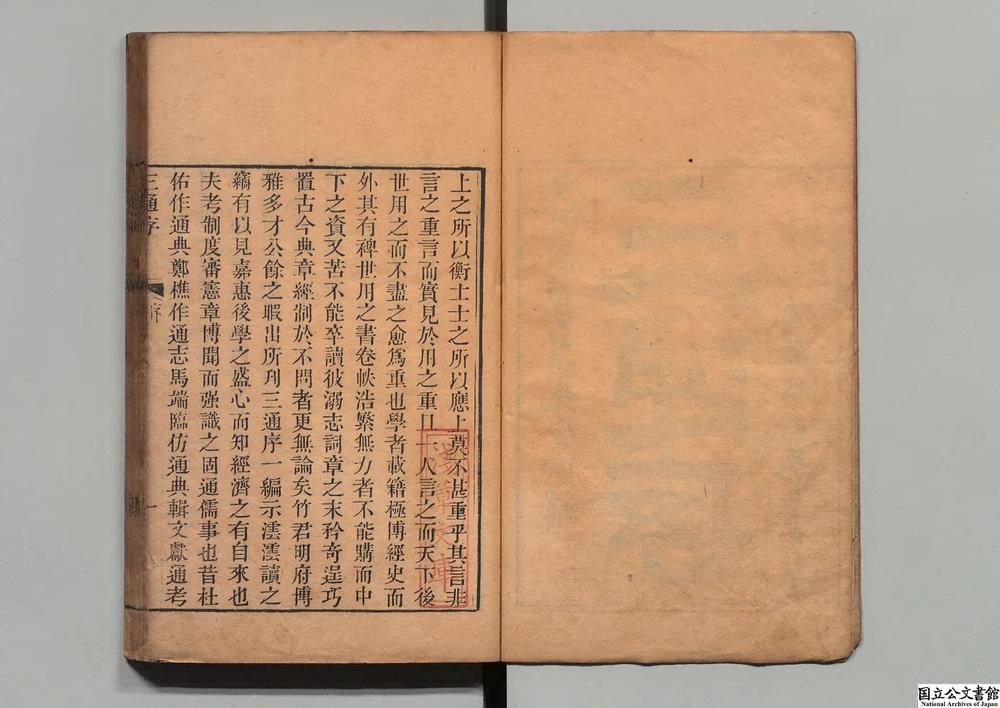 上之所以衡士士之所以應上莫不甚重乎其言非
言之重言而實見於用之重日一人言之而天下後
世用之而不盡之愈爲重也學者載籍極博經史而
外其有裨世用之書卷帙浩繁無力者不能購而中
下之資又苦不能卒讀彼溺志詞章之末矜奇逞巧
置古今典章經制於不問者更無論矣竹君明府博
雅多才公餘之暇出所刋三通序一編示澐澐讀之
竊有以見嘉惠後學之盛心而知經濟之有自來也
夫考制度審憲章博聞而强識之固通儒事也昔杜
佑作通典鄭樵作通志馬端臨仿通典輯文獻通考
三通序
序
一
国立公文書館
National Archives of Japan